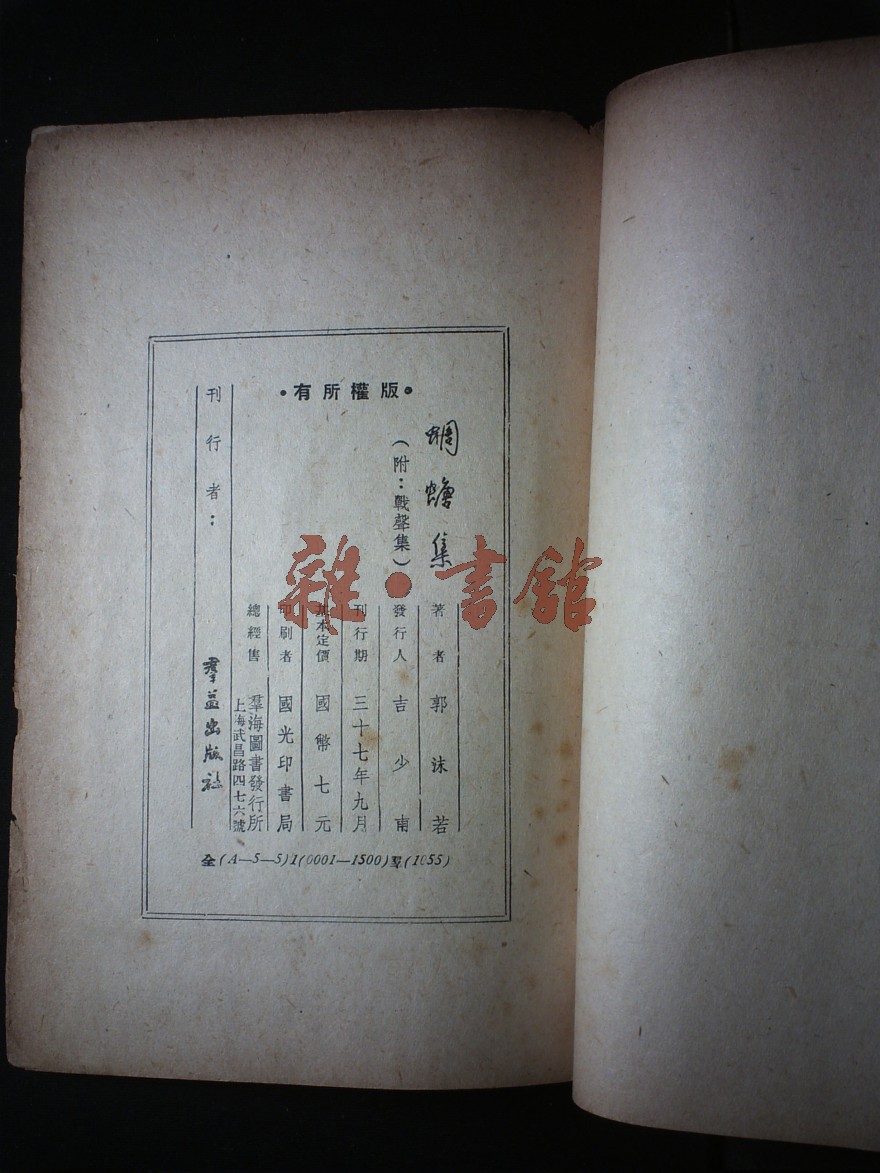 版權所有
蜩螗集
（附：戰聲集）
著者 郭沫若
發行人 吉少甫
刊行期 三十七年九月
基本定價 國幣七元
印刷者 國光印書局
總經售 羣海圖書發行所
上海武昌路四七六號
刊行者：羣益出版社
全(A—5—5)1(0001—1500)羣(1055)
雜·書舘